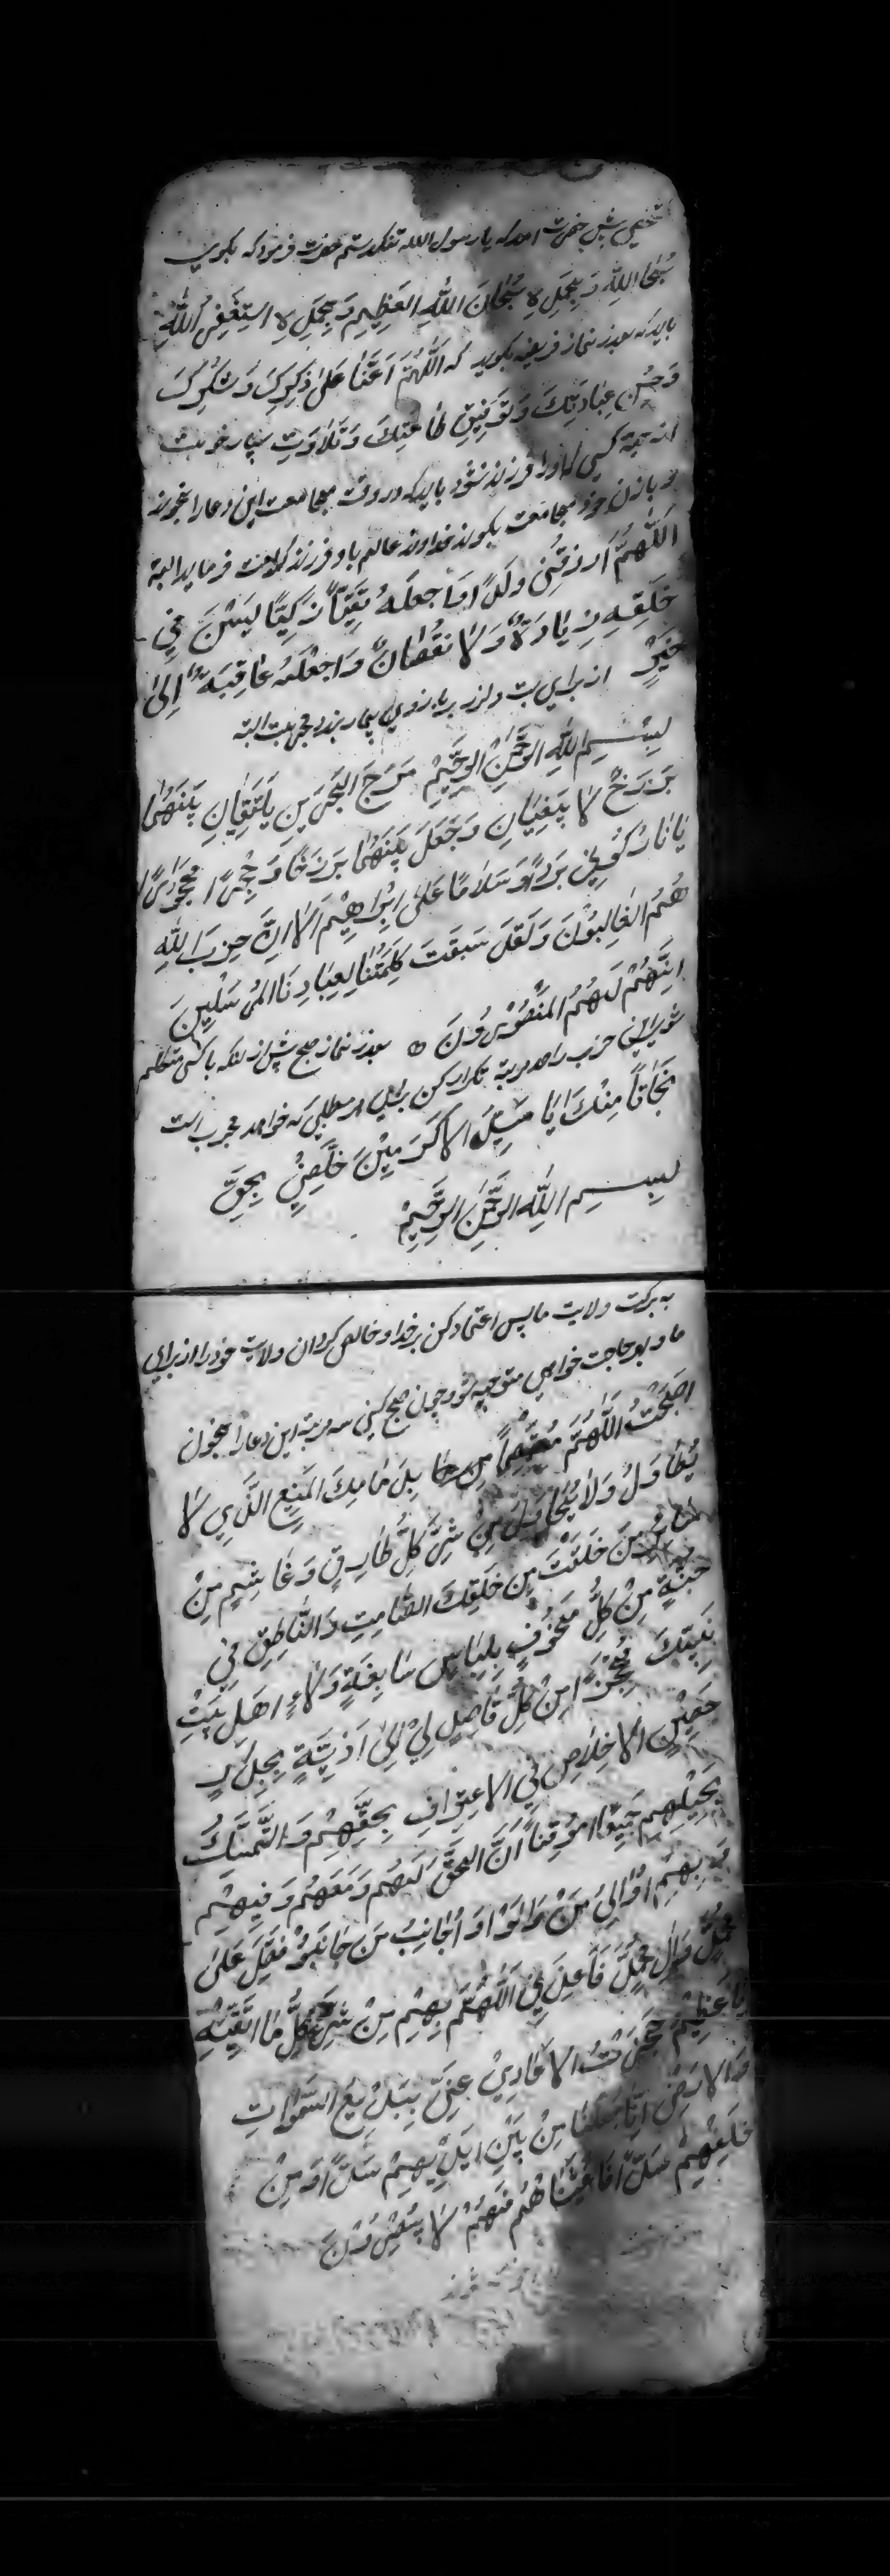 شخصی پیش حضرت امد که یا رسول الله تنگدستم حضرت فرمود که بگوی
سُبْحَانَ اللّٰهِ وَبِحَمْدِهِ سُبْحَانَ اللّٰهِ العَظِيمِ وَبِحَمْدِهِ اسْتَغْفِرُ اللّٰهَ
باید که بعد از نماز فریضه بگوید که اَللّٰهُمَّ اَعِنَّا عَلىٰ ذِكْرِكَ وَشُكْرِكَ
وَحُسْنِ عِبَادَتِكَ وَتَوْفِيقِ طَاعَتِكَ وَتَلَاوَتِ
کسی که او را فرزند نشود باید که در وقت مجامعت این دعا را بخواند
و با زن خود مجامعت بکند خداوند عالم باو فرزند کرامت فرماید البته
اَللّٰهُمَّ اَرْزُقْنِی وَلَدًا وَاجْعَلْهُ تَقِيًّا زَكِيًّا لَيْسَ فِي
خَلْقِهِ زِيَادَةٌ وَلَا نُقْصَانٌ وَاجْعَلْ عَاقِبَتَهُ اِلىٰ
خَيْرٍ از برای تب و لرز بر بازوی بیمار بندد مجربست البته
بِسْمِ اللّٰهِ الرَّحْمٰنِ الرَّحِيْمِ مَرَجَ الْبَحْرَيْنِ يَلْتَقِيَانِ بَيْنَهُمَا
بَرْزَخٌ لَا يَبْغِيَانِ وَجَعَلَ بَيْنَهُمَا بَرْزَخًا وَحِجْرًا مَحْجُورًا
يَا نَارُ كُوْنِي بَرْدًا وَسَلَامًا عَلىٰ اِبْرَاهِيْمَ اَلَا اِنَّ حِزْبَ اللّٰهِ
هُمُ الْغَالِبُوْنَ وَلَقَدْ سَبَقَتْ كَلِمَتُنَا لِعِبَادِنَا الْمُرْسَلِيْنَ
اِنَّهُمْ لَهُمُ الْمَنْصُوْرُوْنَ بعد از نماز صبح پیش از انکه با کسی متکلم
شوی این حزب را صد مرتبه تکرار کن برای هر مطلبی که خواهد مجرب است
نَجَاتًا مِنْكَ يَا سَيِّدَ الْاَكْرَمِيْنَ خَلِّصْنِي بِحَقِّ
بِسْمِ اللّٰهِ الرَّحْمٰنِ الرَّحِيْمِ
به برکت ولایت ما پس اعتماد کن بر خدا و خالص گردان ولایت خود را از برای
ما و بهر حاجت خواهی متوجه شو و چون صبح کنی سه مرتبه این دعا را بخوان
اَصْبَحْتُ اَللّٰهُمَّ مُعْتَصِمًا بِذِمَامِكَ الْمَنِيْعِ الَّذِي لَا
يُطَاوَلُ وَلَا يُحَاوَلُ مِنْ شَرِّ كُلِّ طَارِقٍ وَغَاشِمٍ مِنْ
سَائِرِ مَنْ خَلَقْتَ مِنْ خَلْقِكَ الصَّامِتِ وَالنَّاطِقِ فِي
جُنَّةٍ مِنْ كُلِّ مَخُوْفٍ بِلِبَاسٍ سَابِغَةٍ وَلَاءِ اَهْلِ بَيْتِ
نَبِيِّكَ مُحْتَجِزًا مِنْ كُلِّ قَاصِدٍ لِيْ اِلىٰ اَذِيَّةٍ بِجِدَارٍ
حَصِيْنِ الْاِخْلَاصِ فِي الْاِعْتِرَافِ بِحَقِّهِمْ وَالتَّمَسُّكِ
بِحَبْلِهِمْ جَمِيْعًا مُوْقِنًا اَنَّ الْحَقَّ لَهُمْ وَمَعَهُمْ وَفِيْهِمْ
وَبِهِمْ اُوَالِيْ مَنْ وَالَوْا وَاُجَانِبُ مَنْ جَانَبُوْا فَصَلِّ عَلىٰ
مُحَمَّدٍ وَاٰلِ مُحَمَّدٍ فَاَعِذْنِي اَللّٰهُمَّ بِهِمْ مِنْ شَرِّ كُلِّ مَا اَتَّقِيْهِ
يَا عَظِيْمُ حَجَزْتُ الْاَعَادِيْ عَنِّي بِبَدِيْعِ السَّمٰوَاتِ
وَالْاَرْضِ اِنَّا جَعَلْنَا مِنْ بَيْنِ اَيْدِيْهِمْ سَدًّا وَمِنْ
خَلْفِهِمْ سَدًّا فَاَغْشَيْنَاهُمْ فَهُمْ لَا يُبْصِرُوْنَ